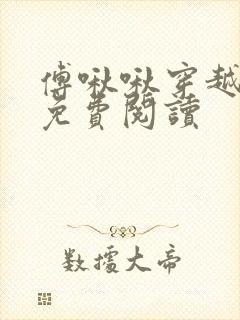 傅啾啾穿越
免費閱讀
数據大帝